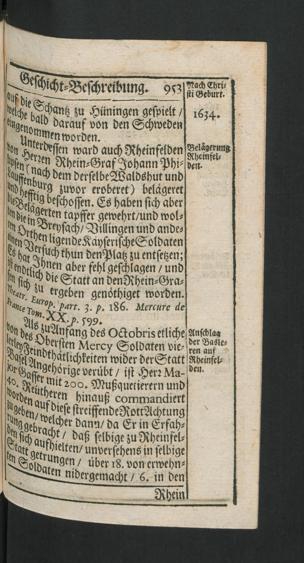 Geschicht-Beschreibung. 953
Nach Chri-
sti Geburt.
auf die Schantz zu Hüningen gespielt /
welche bald darauf von den Schweden
eingenommen worden.
1634.
Unterdessen ward auch Rheinfelden
von Herzen Rhein-Graf Johann Phi-
lipsen ( nach dem derselbe Waldshut und
Lauffenburg zuvor eroberet ) belägeret
und hefftig beschossen. Es haben sich aber
die Belägerten tapffer gewehrt / und wol-
ten die in Breysach / Villingen und ande-
ren Orthen ligende Kayserische Soldaten
einen Versuch thun den Platz zu entsetzen;
Es hat Ihnen aber fehl geschlagen / und
ist endlich die Statt an den Rhein-Gra-
fen sich zu ergeben genöthiget worden.
Theatr. Europ. part. 3. p. 186. Mercure de
France Tom. XX. p. 599.
Belägerung
Rheinfel-
den.
Als zu Anfang des Octobris etliche
von des Obersten Mercy Soldaten vie-
lerley Feindthätlichkeiten wider der Statt
Basel Angehörige verübt / ist Herz Ma-
jor Gasser mit 200. Mußquetierern und
40. Reütheren hinauß commandiert
worden auf diese streiffende Rott Achtung
zu geben / welcher dann / da Er in Erfah-
rung gebracht / daß selbige zu Rheinfel-
den sich aufhielten / unversehens in selbige
Statt getrungen / über 18. von erwehn-
ten Soldaten nidergemacht / 6. in den
Anschlag
der Basle-
ren auf
Rheinfel-
den.
Rhein